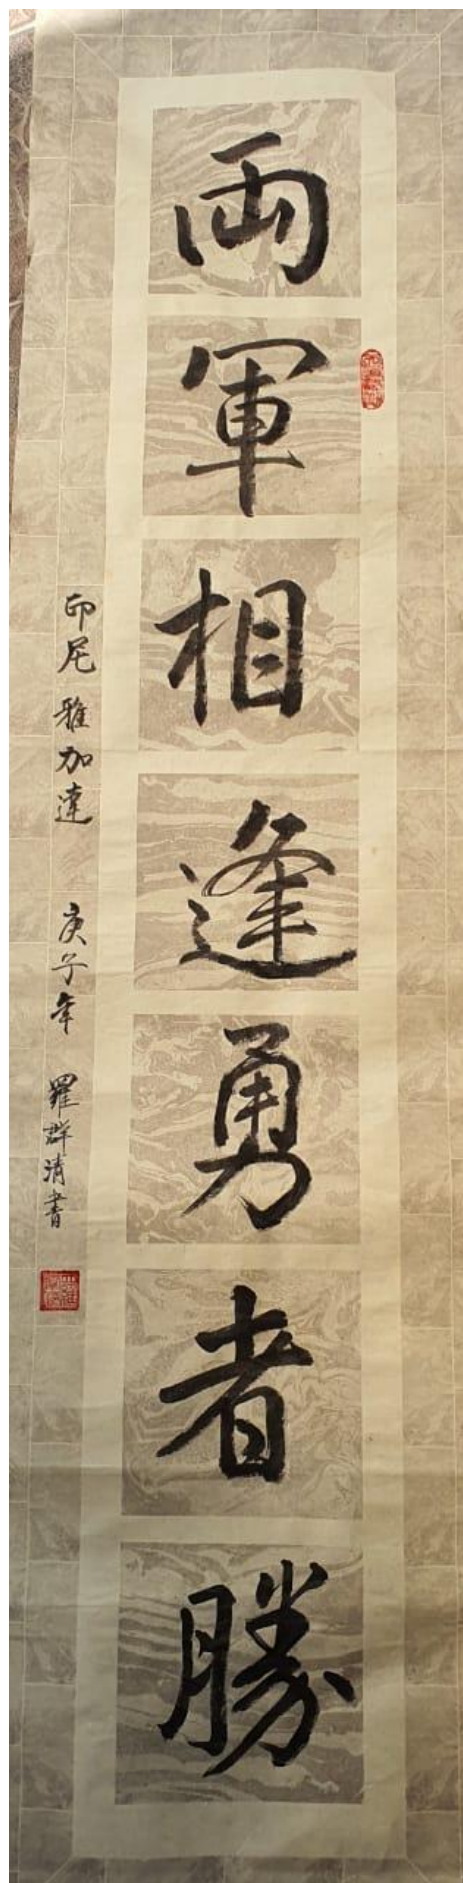 兩軍相逢勇者勝
印尼雅加達 庚子年 羅群清書